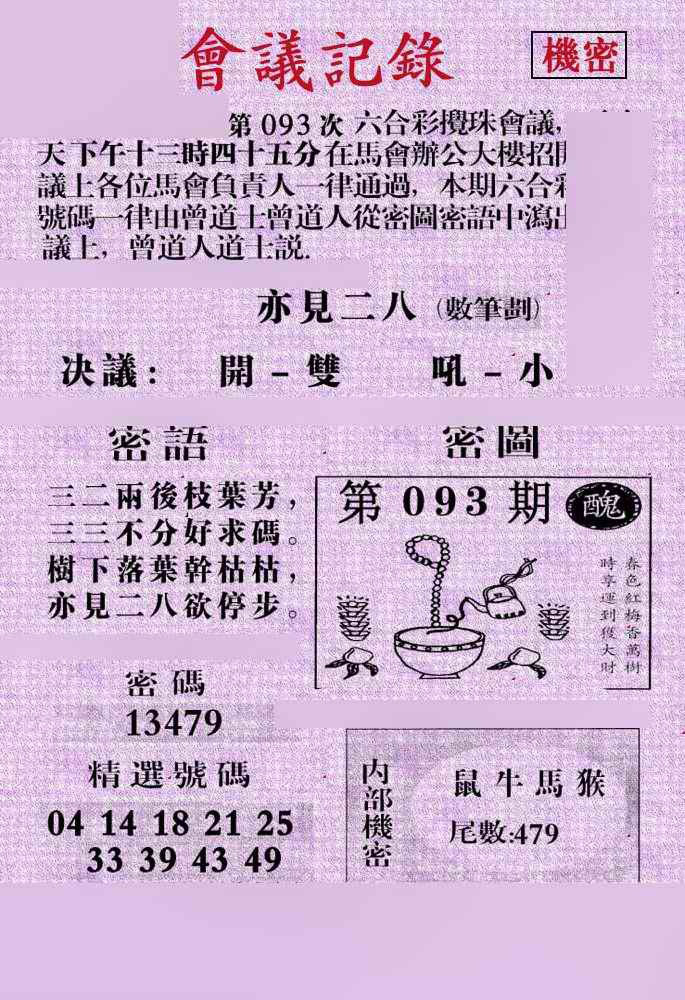 會議記錄
機密
第 093 次 六合彩攪珠會議,
天下午十三時四十五分在馬會辦公大樓招開
議上各位馬會負責人一律通過, 本期六合彩
號碼一律由曾道士曾道人從密圖密語中瀉出
議上, 曾道人道士説.
亦見二八 (數筆劃)
决議: 開-雙 吼-小
密語
三二兩後枝葉芳,
三三不分好求碼。
樹下落葉幹枯枯,
亦見二八欲停步。
密圖
第 093 期 醜
春色紅梅香萬樹
時享運到獲大財
密碼
13479
精選號碼
04 14 18 21 25
33 39 43 49
内部機密
鼠牛馬猴
尾數:479